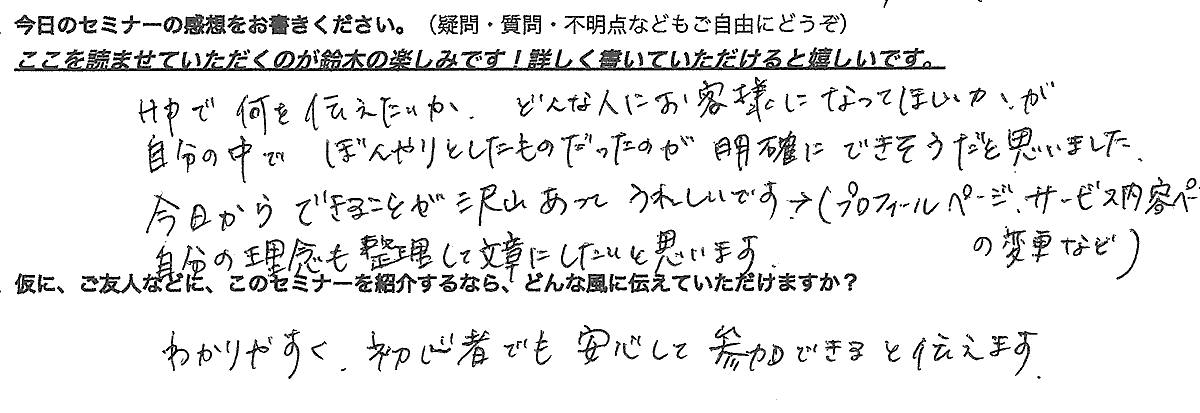 今日のセミナーの感想をお書きください。（疑問・質問・不明点などもご自由にどうぞ）
ここを読ませていただくのが鈴木の楽しみです！詳しく書いていただけると嬉しいです。
HPで何を伝えたいか、どんな人にお客様になってほしいか、が
自分の中でぼんやりとしたものだったのが明確にできそうだと思いました。
今日からできることが沢山あってうれしいです→(プロフィールページ、サービス内容ペ
自分の理念も整理して文章にしたいと思います。
の変更など)
仮に、ご友人などに、このセミナーを紹介するなら、どんな風に伝えていただけますか？
わかりやすく、初心者でも安心して参加できると伝えます。